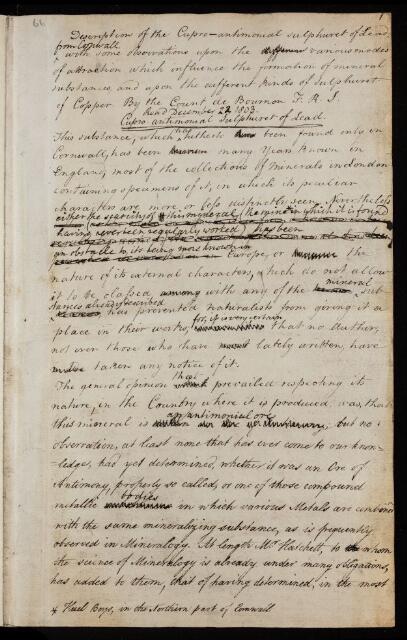 66
1
Description of the Cupro-antimonial sulphuret of Lead,
from Cornwall,
with some observations upon the various modes
of attraction which influence the formation of mineral
substances, and upon the different kinds of sulphuret
of Copper. By the Count de Bournon F.R.S.
Read December 22 1803
Cupro-antimonial Sulphuret of Lead.
This substance, which has hitherto been found only in
Cornwall, has been many Years known in
England, most of the collections of Minerals in London
containing specimens of it, in which its peculiar
characters are more or less distinctly seen. Nevertheless
either the scarcity of this mineral (the mine in which it is found
having never been regularly worked) has been
an obstacle to its being more known in
Europe, or the
nature of its external characters, which do not allow
mineral
it to be classed with any of the sub-
stances already described
has prevented naturalists from giving it a
for, it is very certain,
place in their works, that no Author,
not even those who have lately written, have
taken any notice of it.
that
The general opinion prevailed respecting its
nature, in the Country where it is produced, was, that
an antimonial ore
this mineral is but no
observation, at least none that has ever come to our know-
-ledge, had yet determined, whether it was an Ore of
Antimony, properly so called, or one of those compound
bodies
metallic in which various Metals are combined
with the same mineralizing substance, as is frequently
observed in Mineralogy. At length Mr. Hatchett, to whom
the science of Mineralogy is already under many obligations,
has added to them, that of having determined, in the most
* Huel Boys, in the Northern part of Cornwall